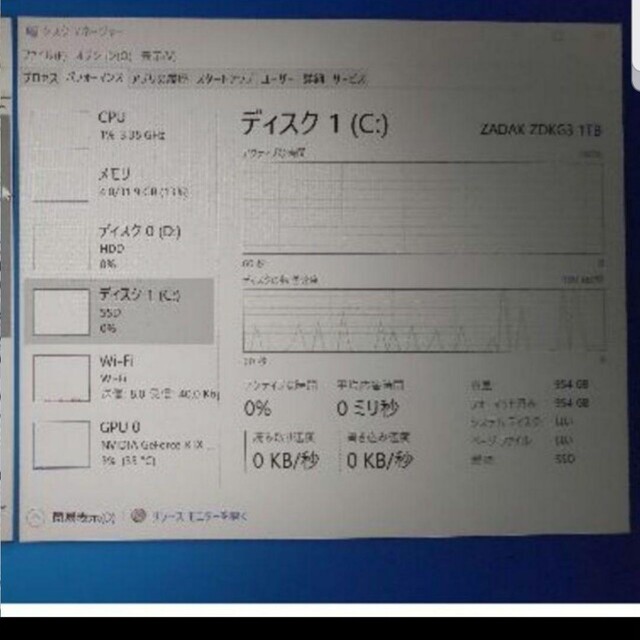 タスク マネージャー
ファイル(F) オプション(O) 表示(V)
プロセス パフォーマンス アプリの履歴 スタートアップ ユーザー 詳細 サービス
CPU
1% 3.35 GHz
メモリ
4.0/31.9 GB (13%)
ディスク 0 (D:)
HDD
0%
ディスク 1 (C:)
SSD
0%
Wi-Fi
Wi-Fi
GPU 0
NVIDIA GeForce RTX ...
ディスク 1 (C:)
ZADAK ZDKG3 1TB
アクティブな時間
60 秒
0
ディスクの転送速度
0
アクティブな時間
0%
平均応答時間
0 ミリ秒
読み取り速度
0 KB/秒
書き込み速度
0 KB/秒
容量: 954 GB
フォーマット済み: 954 GB
システム ディスク: はい
ページ ファイル: はい
種類: SSD
簡易表示(D)
リソース モニターを開く